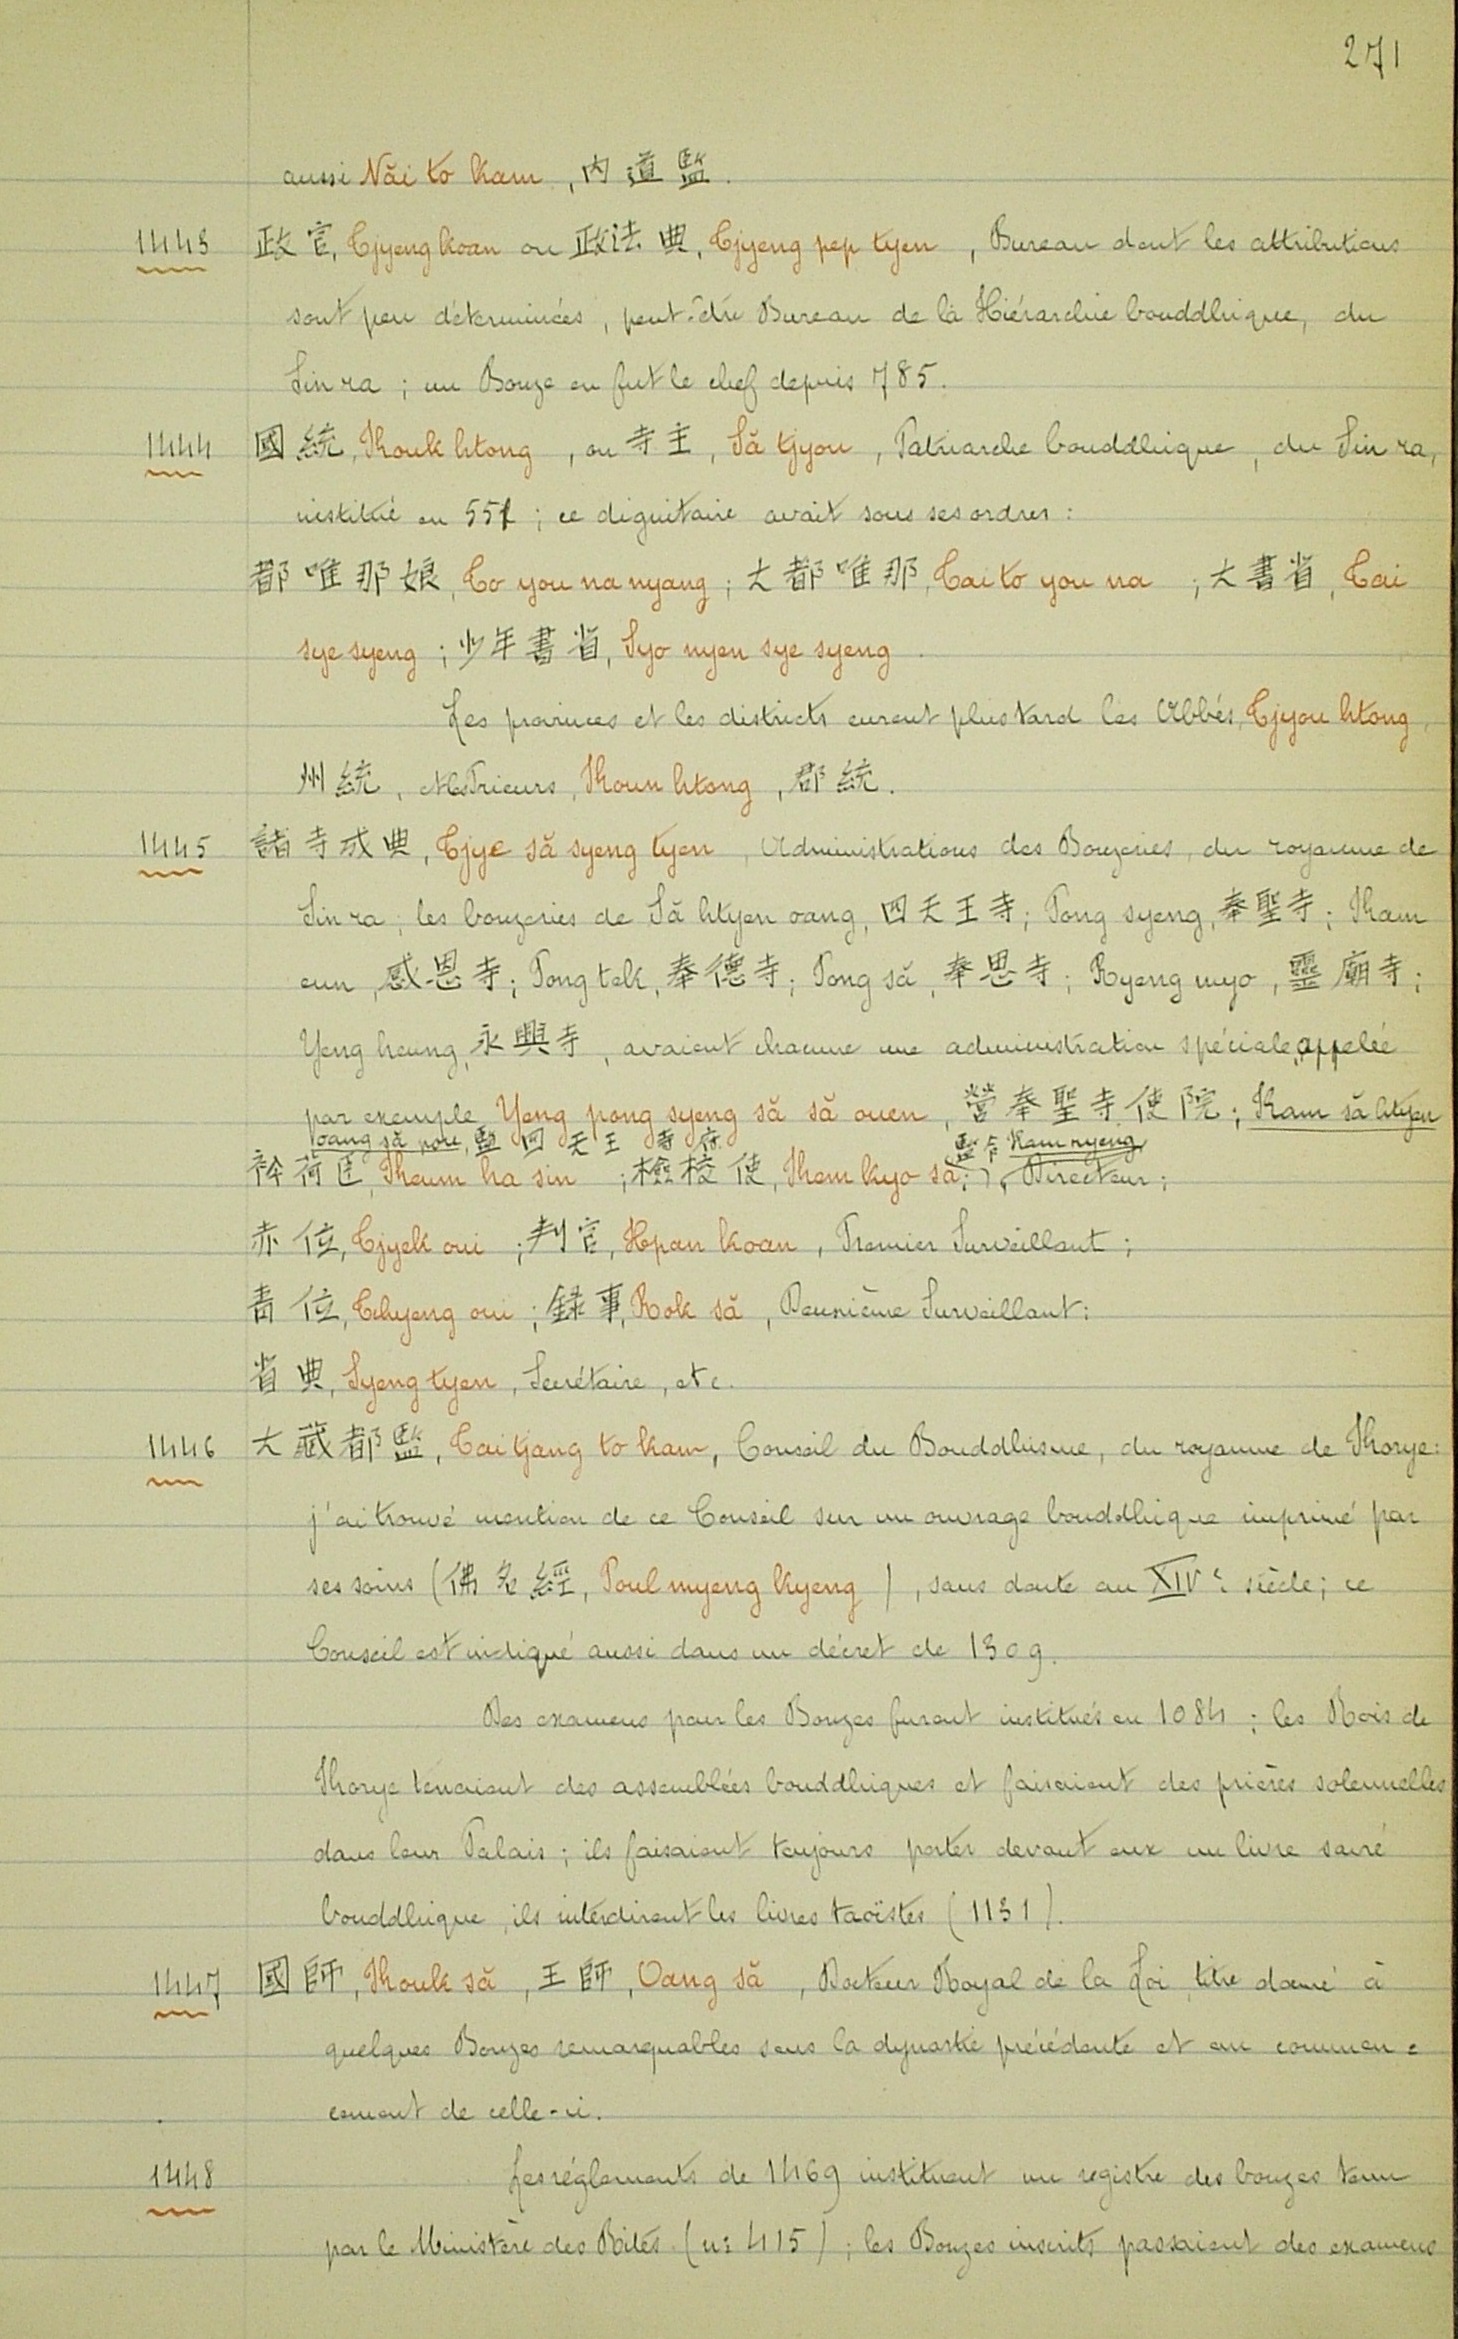 271
aussi Năi to kam, 內道監.
1443 政官, Tjyeng koan ou 政法典, Tjyeng pep tyen, Bureau dont les attributions
sont peu déterminées, peut-être Bureau de la Hiérarchie bouddhique, du
Sin ra; un Bonze en fut le chef depuis 785.
1444 國統, Kouk htong, ou 寺主, Să tjyou, Patriarche bouddhique, du Sin ra,
institué en 551; ce dignitaire avait sous ses ordres:
都唯那娘, To you na nyang; 大都唯那, Tai to you na; 大書省, Tai
sye syeng; 少年書省, Syo nyen sye syeng.
Les provinces et les districts eurent plus tard les Abbés, Tjyou htong,
州統, et les Prieurs, Koun htong, 郡統.
1445 諸寺成典, Tjye să syeng tyen, Administrations des Bonzeries, du royaume de
Sin ra; les bonzeries de Să htyen oang, 四天王寺; Pong syeng, 奉聖寺; Kam
eun, 感恩寺; Pong tek, 奉德寺; Pong să, 奉思寺; Ryeng myo, 靈廟寺;
Yeng heung, 永興寺, avaient chacune une administration spéciale, appelée
par exemple Yeng pong syeng să să ouen, 營奉聖寺使院; Kam să htyen
oang să pou, 監四天王寺府 監令 Kam nyeng
衿荷臣, Keum ha sin; 檢校使, Kem kyo să; ), Directeur;
赤位, Tjyek oui; 判官, Hpan koan, Premier Surveillant;
青位, Tchyeng oui; 録事, Rok să, Deuxième Surveillant;
省典, Syeng tyen, Secrétaire, etc.
1446 大藏都監, Tai tjang to kam, Conseil du Bouddhisme, du royaume de Korye:
j'ai trouvé mention de ce Conseil sur un ouvrage bouddhique imprimé par
ses soins (佛名經, Poul myeng kyeng), sans doute au XIVe siècle; ce
Conseil est indiqué aussi dans un décret de 1309.
Des examens pour les Bonzes furent institués en 1084; les Rois de
Korye tenaient des assemblées bouddhiques et faisaient des prières solennelles
dans leur Palais; ils faisaient toujours porter devant eux un livre sacré
bouddhique, ils interdirent les livres taoïstes (1131).
1447 國師, Kouk să, 王師, Oang să, Docteur Royal de la Loi, titre donné à
quelques Bonzes remarquables sous la dynastie précédente et au commen=
cement de celle-ci.
1448 Les réglements de 1469 instituent un registre des bonzes tenu
par le Ministère des Rites (no 415); les Bonzes inscrits passaient des examens